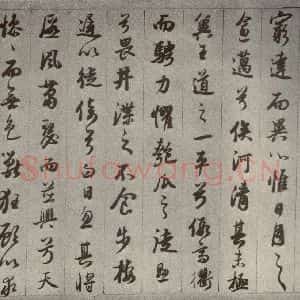 窮達而異心惟日月之
逾邁兮俟河清其未極
冀王道之一平兮假高衢
而騁力懼匏瓜之徒懸
兮畏井渫之不食步棲
遲以徙倚兮白日忽其將
匿風蕭瑟而並興兮天
慘慘而無色獸狂顧以求
Shufawang.CN